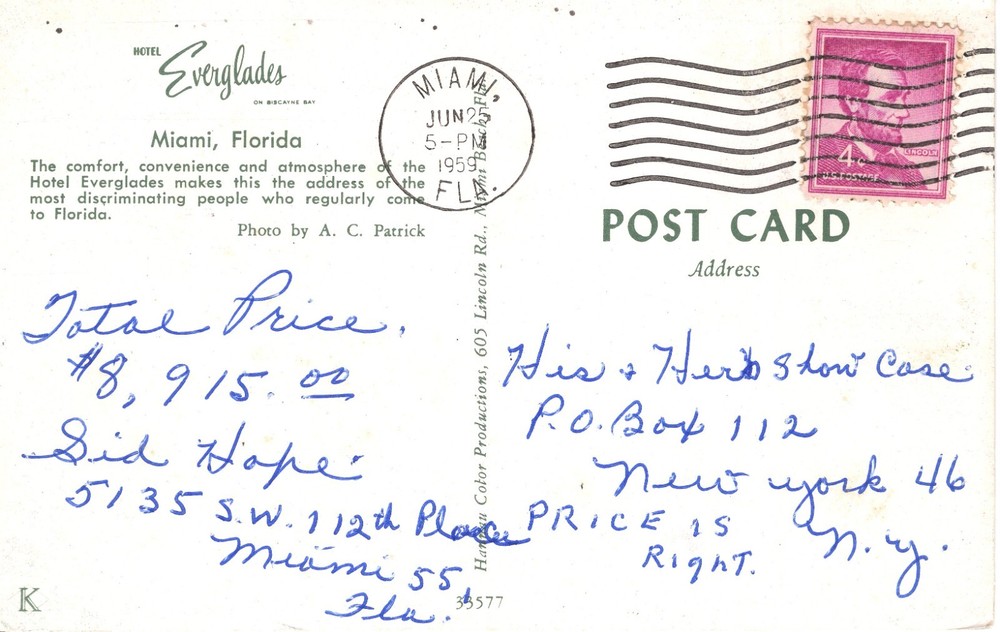 HOTEL
Everglades
ON BISCAYNE BAY
Miami, Florida
The comfort, convenience and atmosphere of the
Hotel Everglades makes this the address of the
most discriminating people who regularly come
to Florida.
Photo by A. C. Patrick
MIAMI,
JUN 25
5-PM
1959
FLA.
4¢
LINCOLN
U.S. POSTAGE
POST CARD
Address
Color Productions, 605 Lincoln Rd., Miami Beach, Fla.
Total Price.
$8,915.00
Sid Hope
5135 S.W. 112th Place
Miami 55,
Fla.
His & Hers Show Case
P.O. Box 112
New York 46
N.Y.
PRICE IS
RIGHT.
K
33577